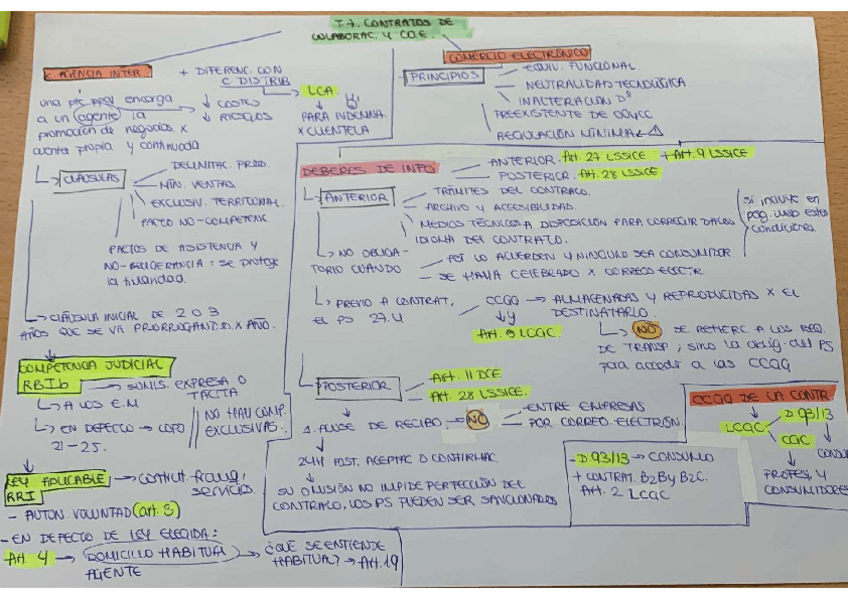 T.7. CONTRATOS DE
COLABORAC. Y CO.E.
AGENCIA INTER
una pte ppal encarga
a un agente la
promoción de negocios x
cuenta propia y continuada
+ DIFERENC. CON
C DISTRIB
↓ COSTES
↓ RIESGOS
LCA
PARA INDEMN.
X CLIENTELA
CLÁUSULAS
DELIMITAC. PROD.
MÍN. VENTAS
EXCLUSIV. TERRITORIAL.
PACTO NO-COMPETENC
PACTOS DE ASISTENCIA Y
NO-BELIGERANCIA: se protege
la titularidad.
CLÁUSULA INICIAL DE 2 O 3
AÑOS QUE SE VA PRORROGANDO X AÑO.
COMPETENCIA JUDICIAL
RBIb
SUMIS. EXPRESA O
TÁCITA
A LOS E.M
EN DEFECTO → LOPJ
21-25.
NO HAY COMP.
EXCLUSIVAS.
LEY APLICABLE
RRI
contrat. franq,
servicios.
- AUTON. VOLUNTAD (art. 3)
- EN DEFECTO DE LEY ELEGIDA:
Art. 4 → DOMICILIO HABITUAL
AGENTE
¿QUÉ SE ENTIENDE
HABITUAL? → Art. 19
COMERCIO ELECTRÓNICO
PRINCIPIOS
EQUIV. FUNCIONAL
NEUTRALIDAD TECNOLÓGICA
INALTERACIÓN Dº
PREEXISTENTE DE OO Y CC
REGULACIÓN MÍNIMA
DEBERES DE INFO
ANTERIOR. Art. 27 LSSICE + Art. 9 LSSICE
POSTERIOR. Art. 28 LSSICE
ANTERIOR
TRÁMITES DEL CONTRATO.
ARCHIVO Y ACCESIBILIDAD.
MEDIOS TÉCNICOS A DISPOSICIÓN PARA CORREGIR DATOS
IDIOMA DEL CONTRATO.
si incluye en
pág. web estas
condiciones.
NO OBLIGA-
TORIO CUANDO
ASÍ LO ACUERDEN Y NINGUNO SEA CONSUMIDOR
SE HAYA CELEBRADO X CORREO ELECTR
PREVIO A CONTRAT,
EL PS 27.4
CCGG → ALMACENADAS Y REPRODUCIDAS X EL
DESTINATARIO.
↓ y
Art. 5 LCGC.
NO SE REFIERE A LOS REQ.
DE TRANSP; sino la oblig. del PS
para acceder a las CCGG
POSTERIOR
Art. 11 DCE
Art. 28 LSSICE.
1. ACUSE DE RECIBO. → NO
ENTRE EMPRESAS
POR CORREO ELECTRÓN.
24H POST. ACEPTAC O CONFIRMAC.
SU OMISIÓN NO IMPIDE PERFECCIÓN DEL
CONTRATO, LOS PS PUEDEN SER SANCIONADOS
- D.93/13 → CONSUMO
+ CONTRAT. B2B y B2C.
Art. 2 LCGC
CCGG DE LA CONTR.
LCGC
D 93/13
CGC
CONSU
PROFES. Y
CONSUMIDORES